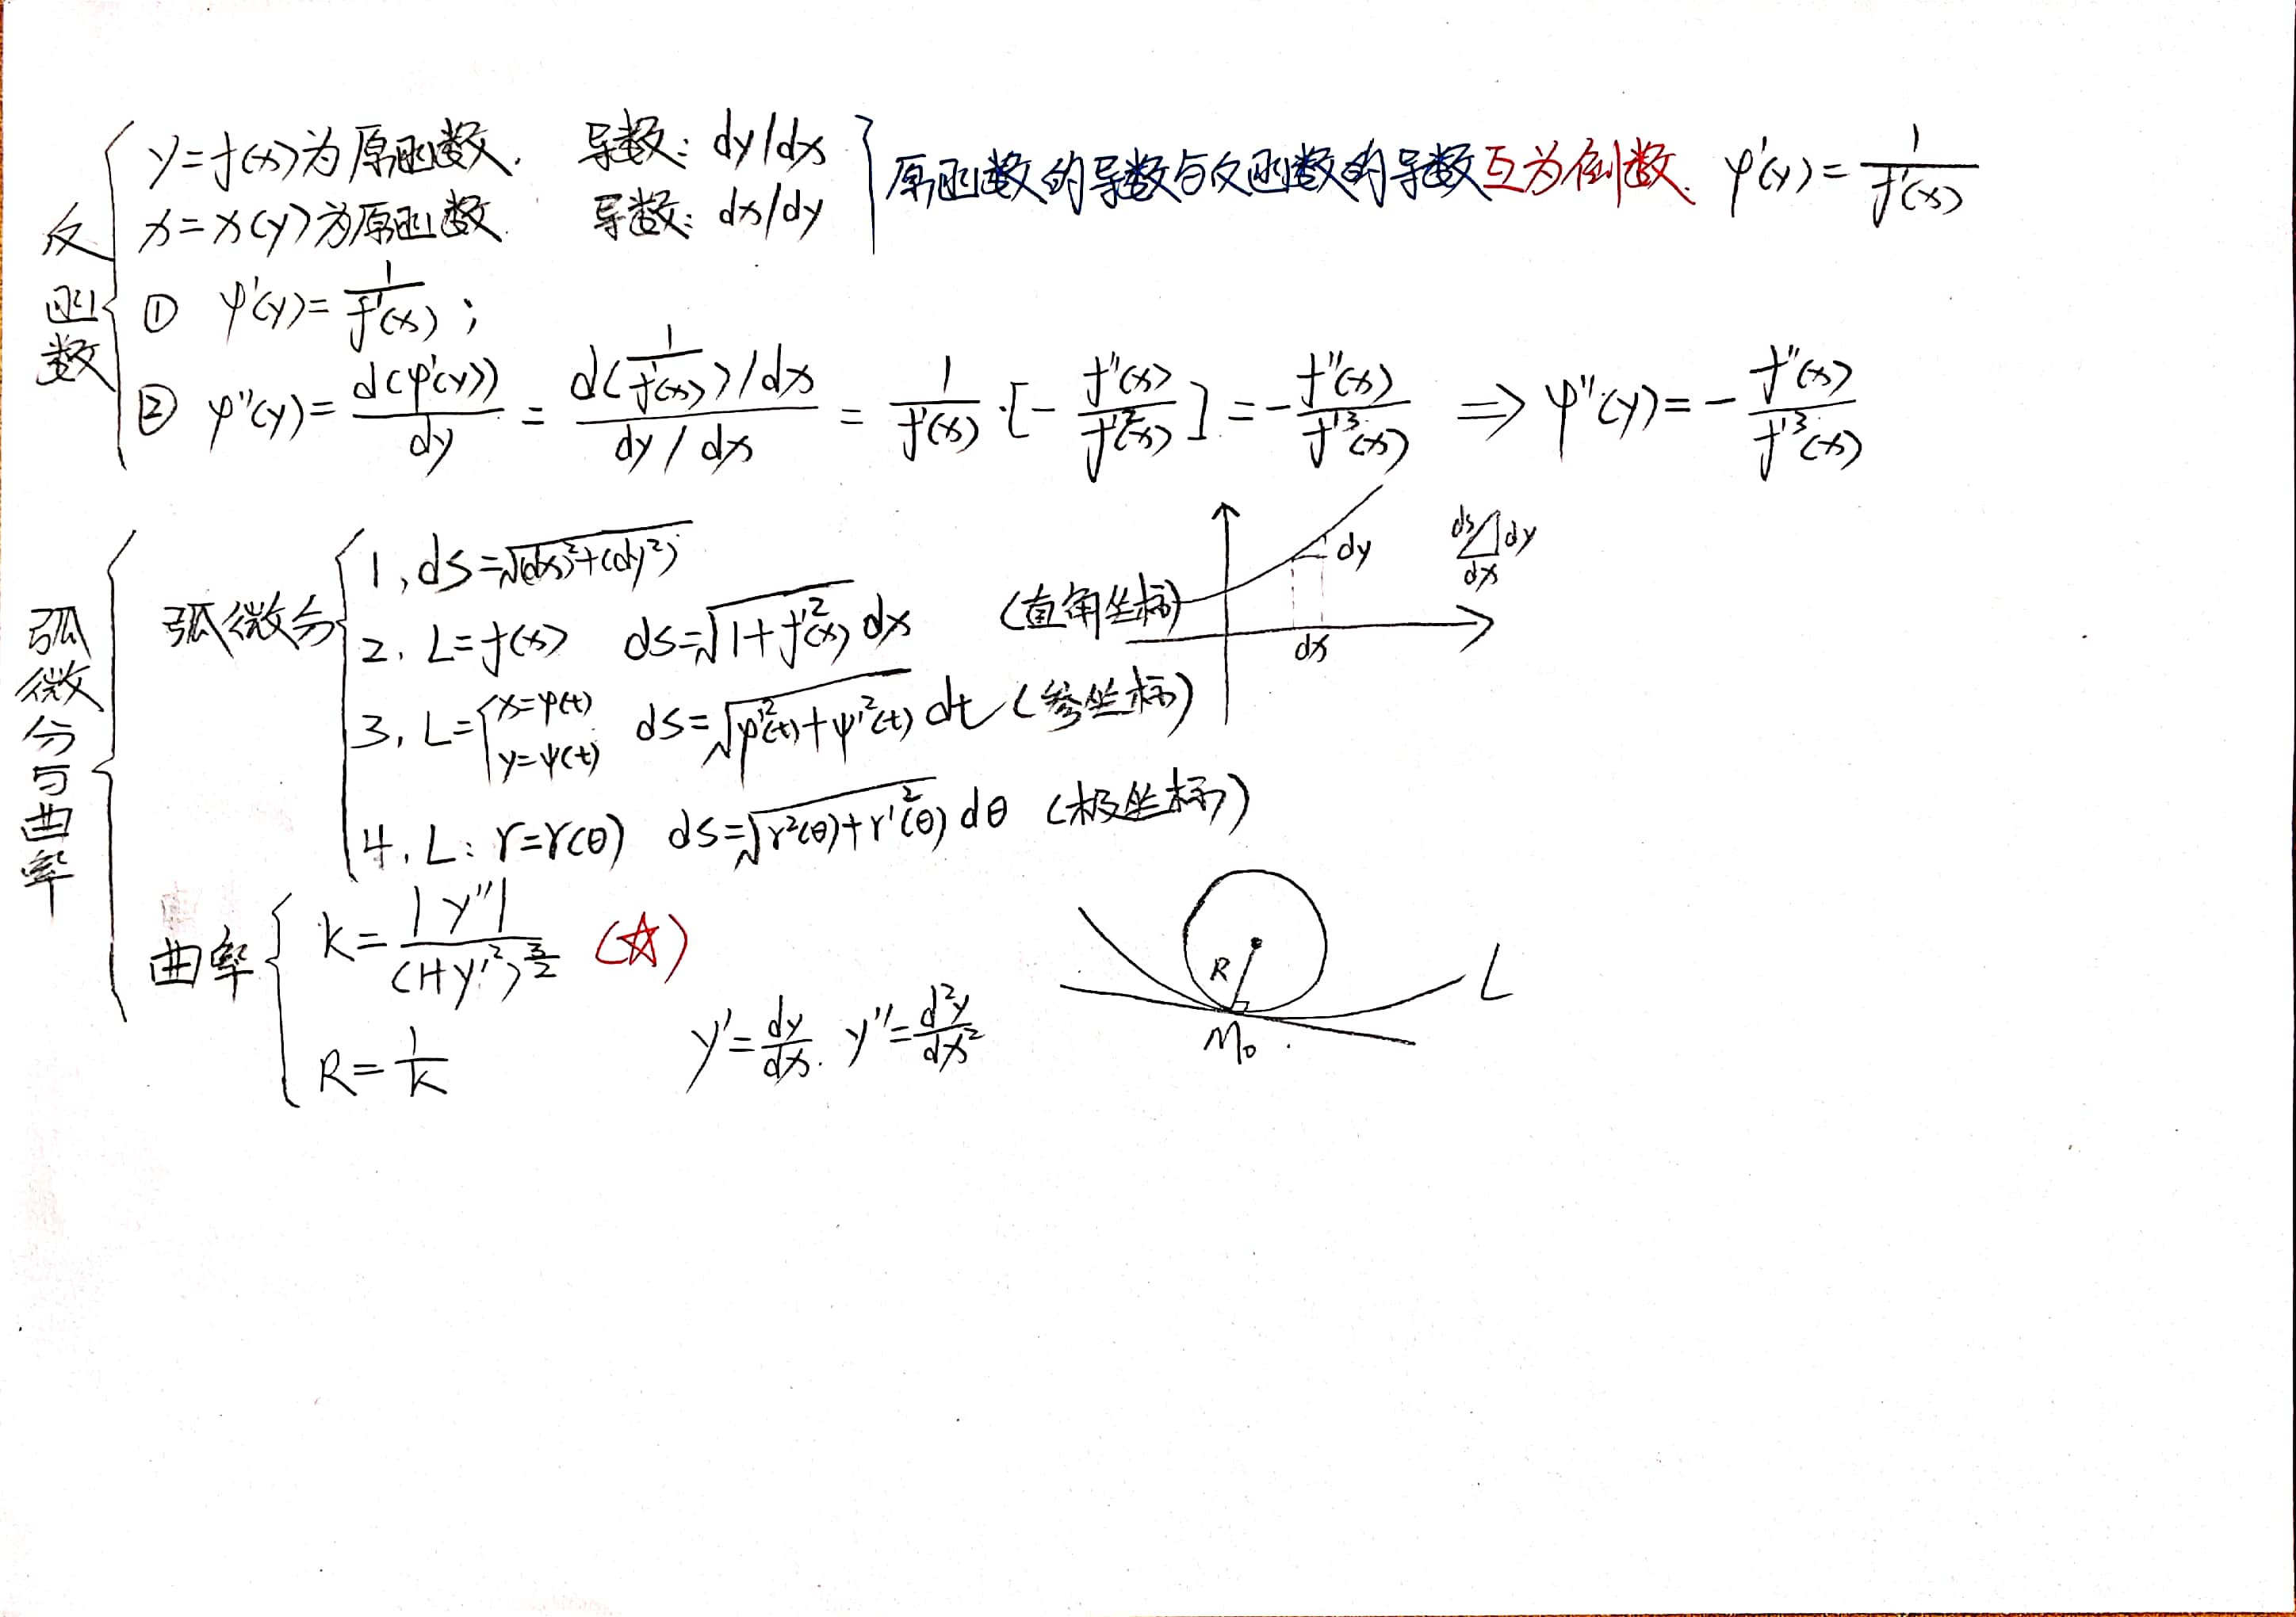 反函数
y=f(x)为原函数. 导数: dy/dx
x=x(y)为原函数. 导数: dx/dy
原函数的导数与反函数的导数互为倒数. φ'(y)=1/f'(x)
① φ'(y)=1/f'(x) ;
② φ''(y)=d(φ'(y))/dy = (d(1/f'(x))/dx)/(dy/dx) = 1/f'(x)·[-f''(x)/f'²(x)] = -f''(x)/f'³(x) ⇒ φ''(y)=-f''(x)/f'³(x)
弧微分与曲率
弧微分
1, ds=√((dx)²+(dy²))
2, L=f(x) ds=√(1+f'²(x)) dx (直角坐标)
3, L={x=φ(t) y=ψ(t) ds=√(φ'²(t)+ψ'²(t)) dt (参坐标)
4, L: r=r(θ) ds=√(r²(θ)+r'²(θ)) dθ (极坐标)
dy
dx
ds dy
dx
曲率
k=|y''|/(1+y'²)^(3/2) (☆)
R=1/k
y'=dy/dx. y''=d²y/dx²
R
L
M₀.